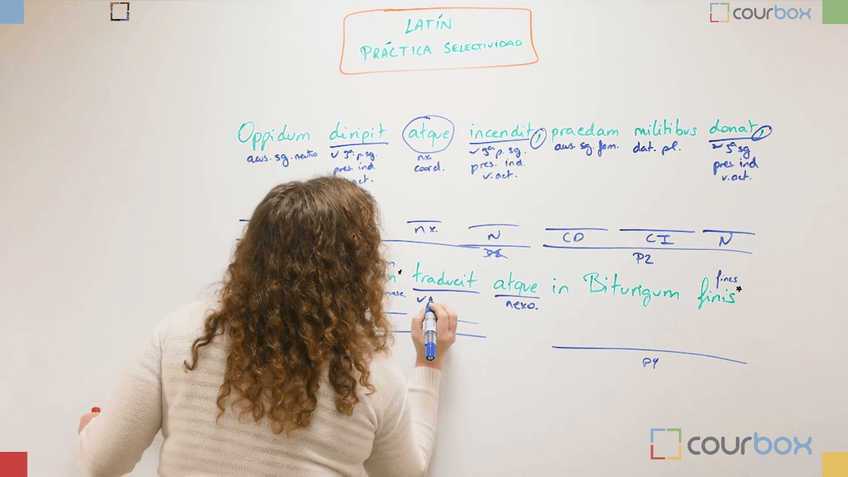 courbox
LATÍN
PRÁCTICA SELECTIVIDAD
Oppidum diripit atque incendit, praedam militibus donat,
acus. sg. neutro v 3ª p. sg. nx coord. v 3ª p. sg. acus. sg. fem. dat. pl. v 3ª sg
pres. ind. v. act. pres. ind. v. act. pres. ind v. act.
nx. N CD CI N
P2
traduccit atque in Biturigum finis* fines
nexo.
P4
courbox